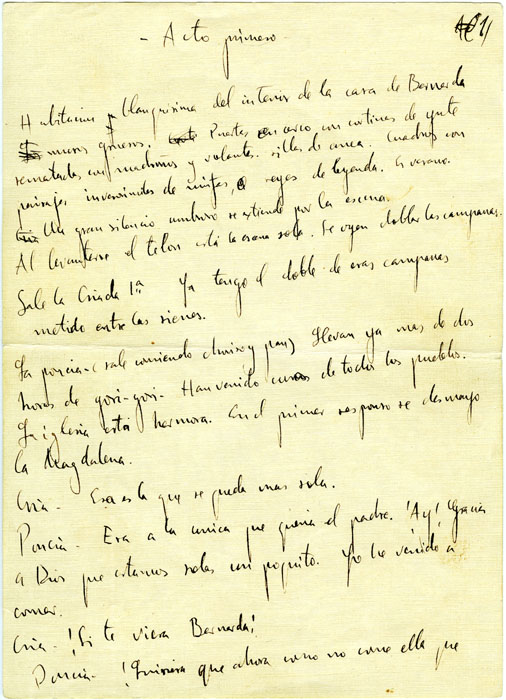 - Acto primero -
1)
Habitación blanquísima del interior de la casa de Bernarda
muros gruesos. Puertas en arco con cortinas de yute
rematadas con madroños y volantes. sillas de anea. Cuadros con
paisajes inverosímiles de ninfas, o reyes de leyenda. Es verano.
Un gran silencio umbroso se extiende por la escena.
Al levantarse el telon está la escena sola. Se oyen doblar las campanas.
Sale la Criada 1ª Ya tengo el doble de esas campanas
metido entre las sienes.
La poncia - (sale comiendo chorizo y pan) Llevan ya mas de dos
horas de gori-gori. Han venido curas de todos los pueblos.
La iglesia está hermosa. En el primer responso se desmayo
la Magdalena.
Cria - Esa es la que se queda mas sola.
Poncia - Era a la unica que queria el padre. ¡Ay! Gracias
a Dios que estamos solas un poquito. Yo he venido a
comer.
Cria - ¡Si te viera Bernarda!
Poncia - ¡Quisiera que ahora como no come ella que